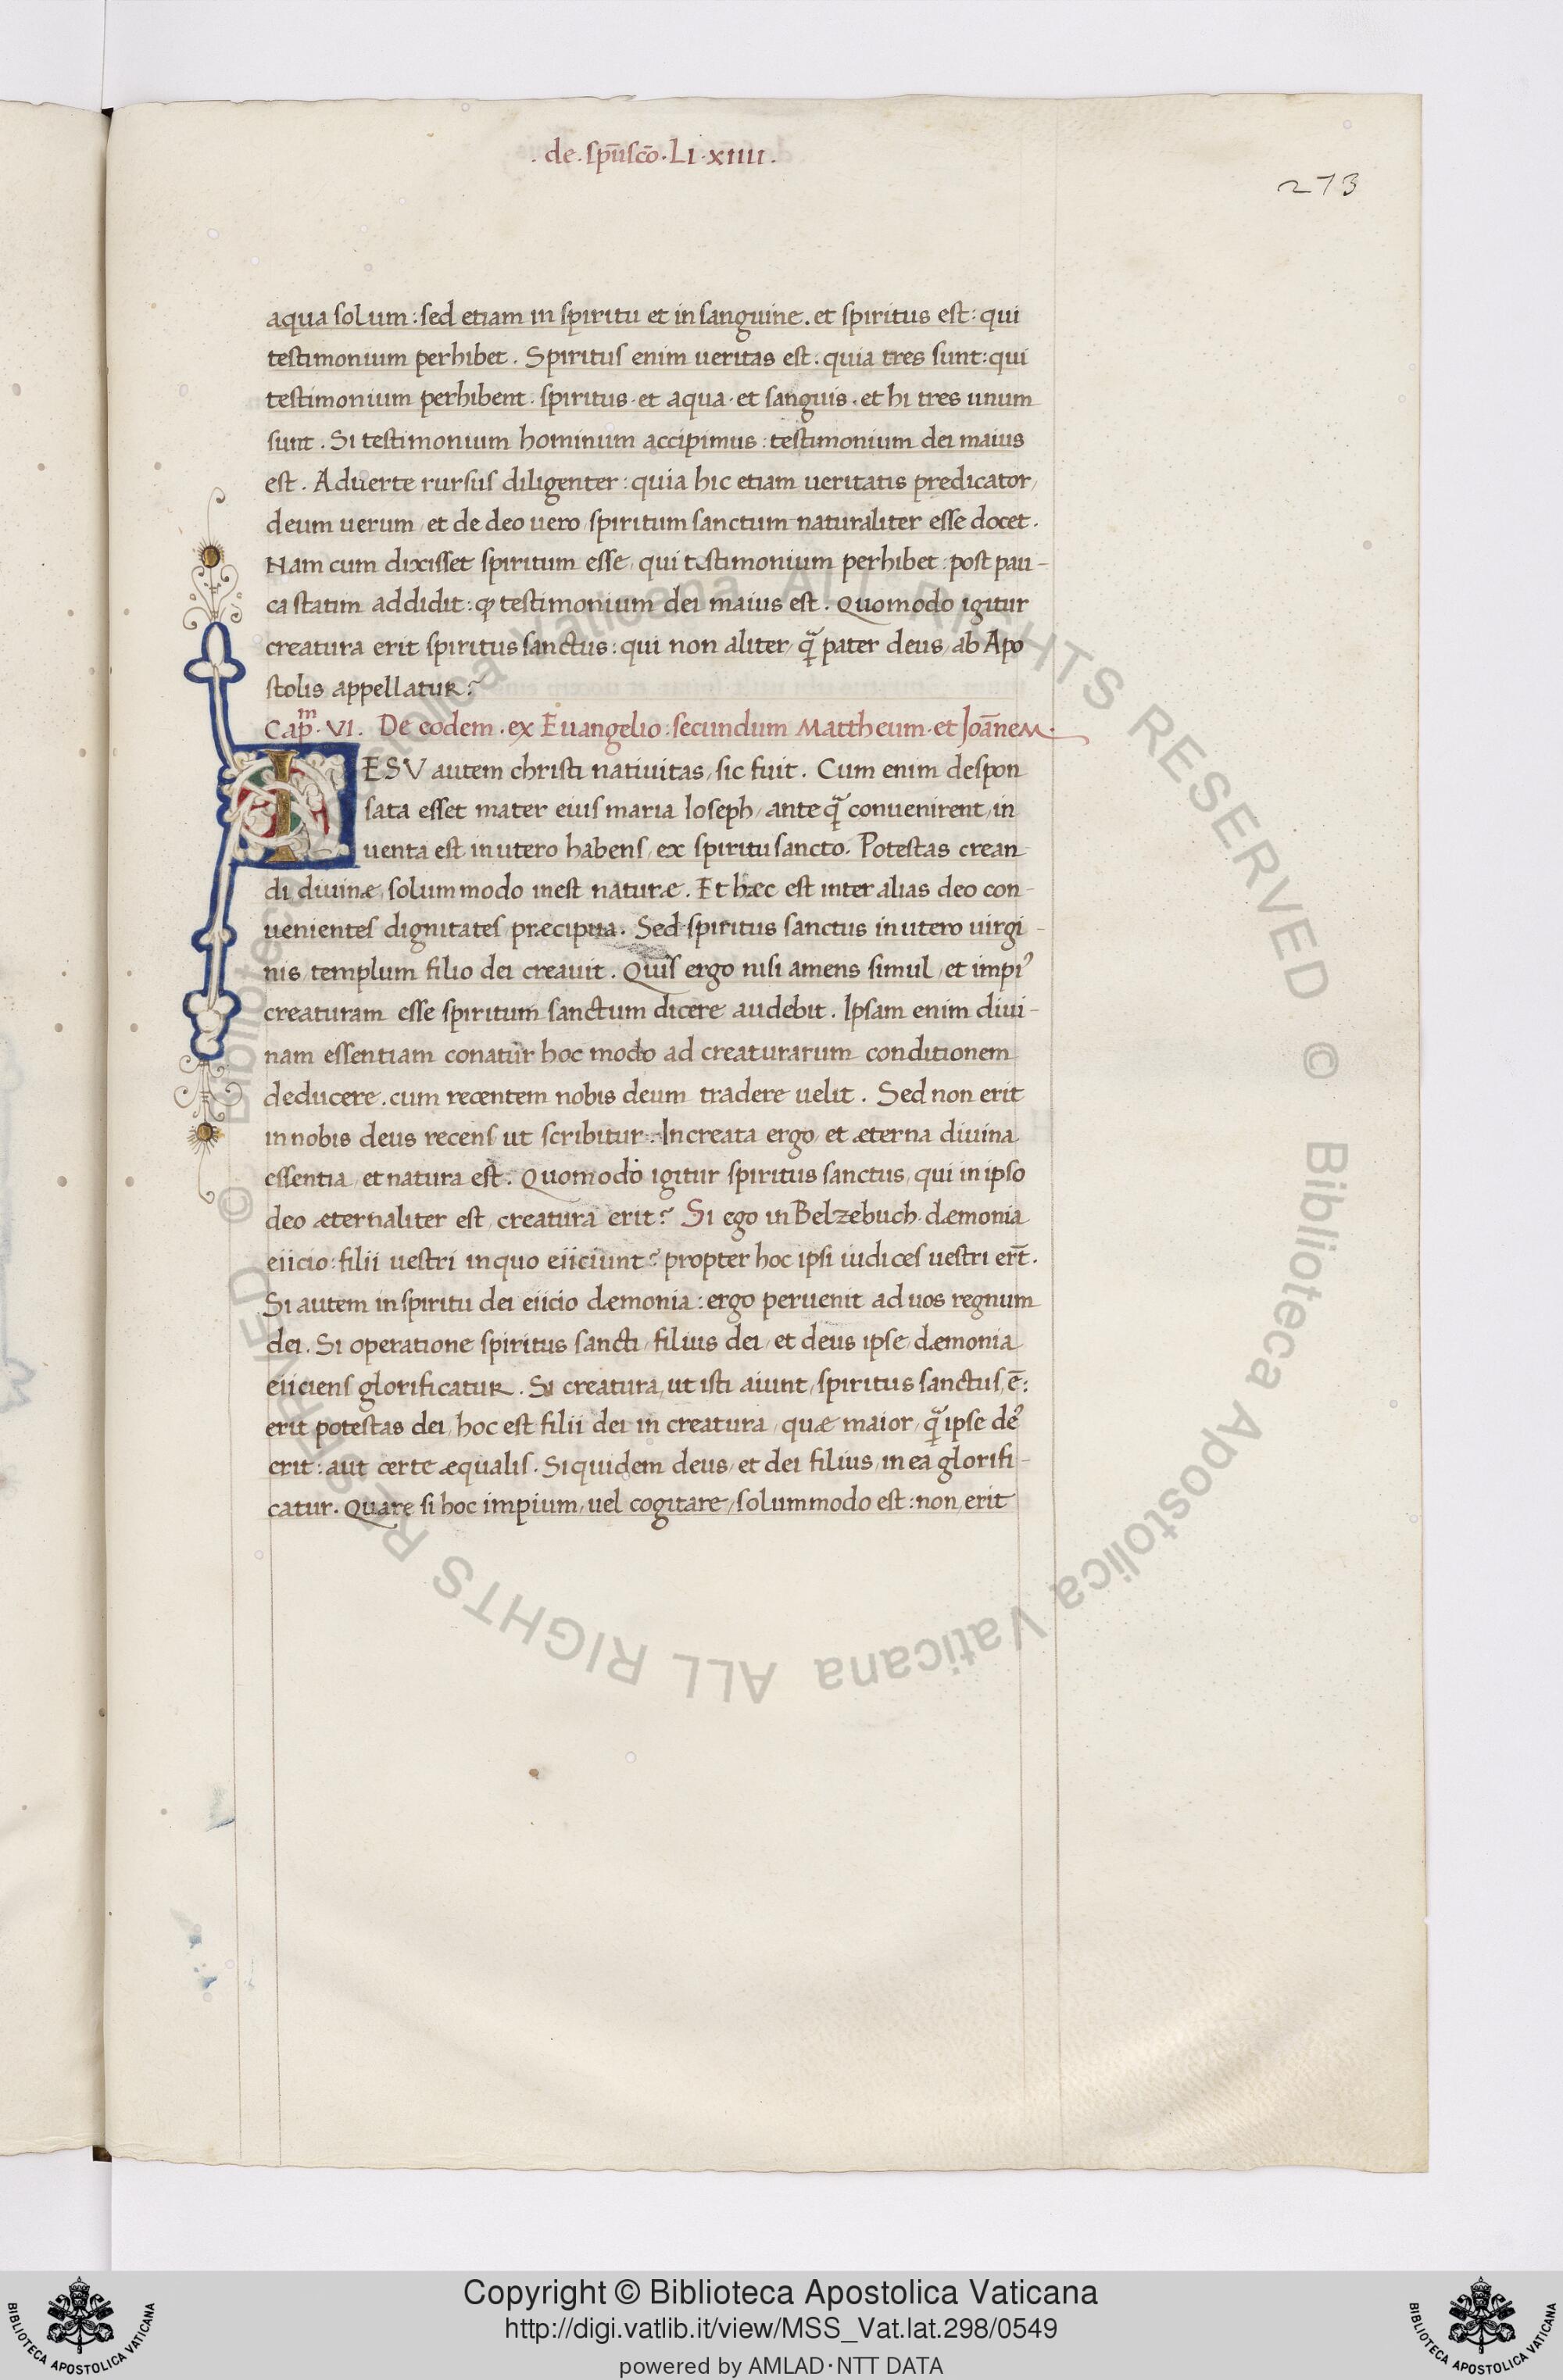 . de . spūscō . LI . XIIII .
273
aqua solum : sed etiam in spiritu et in sanguine . et spiritus est : qui
testimonium perhibet . Spiritus enim ueritas est . quia tres sunt : qui
testimonium perhibent . spiritus . et aqua . et sanguis . et hi tres unum
sunt . Si testimonium hominum accipimus : testimonium dei maius
est . Aduerte rursus diligenter : quia hic etiam ueritatis predicator,
deum uerum, et de deo uero, spiritum sanctum naturaliter esse docet .
Nam cum dixisset spiritum esse, qui testimonium perhibet : post pau-
ca statim addidit : ꝙ testimonium dei maius est . Quomodo igitur
creatura erit spiritus sanctus : qui non aliter, q̃ pater deus, ab Apo
stolis appellatur ?
Cap̄ᵐ . VI . De eodem . ex Euangelio : secundum Mattheum . et Joānem .
IESV autem christi natiuitas, sic fuit . Cum enim despon
sata esset mater eius maria Ioseph, ante q̃ conuenirent, in
uenta est in utero habens, ex spiritu sancto . Potestas crean
di diuinæ, solummodo inest naturæ . Et hæc est inter alias deo con-
uenientes dignitates præcipua . Sed spiritus sanctus in utero uirgi-
nis, templum filio dei creauit . Quis ergo nisi amens simul, et impi᾽
creaturam esse spiritum sanctum dicere audebit . Ipsam enim diui-
nam essentiam conatur hoc modo ad creaturarum conditionem
deducere . cum recentem nobis deum tradere uelit . Sed non erit
in nobis deus recens, ut scribitur . Increata ergo, et æterna diuina
essentia, et natura est . Quomodo igitur spiritus sanctus, qui in ipso
deo æternaliter est, creatura erit ? Si ego in Belzebuch dæmonia
eiicio : filii uestri in quo eiiciunt ? propter hoc ipsi iudices uestri erūt .
Si autem in spiritu dei eiicio dæmonia : ergo peruenit ad uos regnum
dei . Si operatione spiritus sancti, filius dei, et deus ipse, dæmonia
eiiciens glorificatur . Si creatura, ut isti aiunt, spiritus sanctus, ē :
erit potestas dei, hoc est filii dei in creatura, quæ maior, q̃ ipse de᾽
erit : aut certe æqualis . Siquidem deus, et dei filius, in ea glorifi-
catur . Quare si hoc impium, uel cogitare, solummodo est : non erit
© Biblioteca Apostolica Vaticana ALL RIGHTS RESERVED © Biblioteca Apostolica Vaticana ALL RIGHTS RESERVED
Copyright © Biblioteca Apostolica Vaticana
http://digi.vatlib.it/view/MSS_Vat.lat.298/0549
powered by AMLAD·NTT DATA
BIBLIOTECA APOSTOLICA VATICANA
BIBLIOTECA APOSTOLICA VATICANA